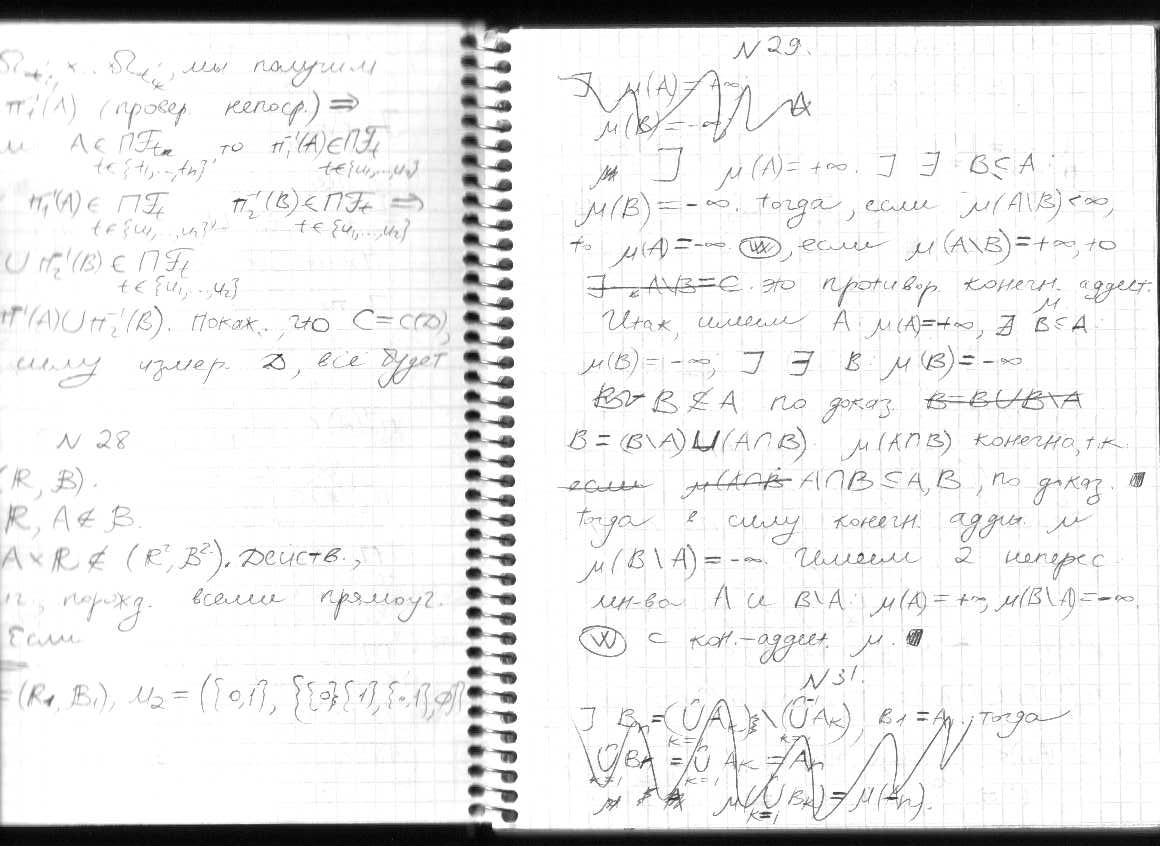 Ω_{t'_1} × .. Ω_{t'_k}, мы получим
π_1^{-1}(A) (провер. непоср.) ⇒
и A ∈ ΠF_t то π_1^{-1}(A) ∈ ΠF_t
t∈{t_1,..,t_n} t∈{u_1,...,u_2}
π_1^{-1}(A) ∈ ΠF_t π_2^{-1}(B) ∈ ΠF_t ⇒
t∈{u_1,..,u_2} t∈{u_1,...,u_2}
∪ π_2^{-1}(B) ∈ ΠF_t
t∈{u_1,..,u_2}
π^{-1}(A) ∪ π_2^{-1}(B). Покаж., что C = C(D),
силу измер. D, всё будет
N 28
(R, B).
R, A ∉ B.
A × R ∉ (R², B²). Действ.,
порожд. всеми прямоуг.
Если
= (R_1, B_1), M_2 = ({0,1}, {{0},{1},{0,1},∅})
N 29.
∃ μ(A) = +∞
μ(B) = -∞
∃ μ(A) = +∞. ∃ ∃ B ⊆ A:
μ(B) = -∞. тогда, если μ(A\B) < ∞,
то μ(A) = -∞ (W), если μ(A\B) = +∞, то
∃ A\B = C. это противор. конечн. аддит. μ
Итак, имеем A: μ(A) = +∞, ∄ B ⊆ A:
μ(B) = -∞; ∃ ∃ B: μ(B) = -∞
B ⊄ A по доказ. B = B ∪ B\A
B = (B\A) ⊔ (A∩B). μ(A∩B) конечно, т.к.
если μ(A∩B A∩B ⊆ A, B, по доказ.
Тогда в силу конечн. адди. μ
μ(B\A) = -∞. Имеем 2 неперес
мн-ва A и B\A: μ(A) = +∞, μ(B\A) = -∞.
(W) с кон.-аддит. μ.
N 31.
∃ B_n = (∪_{k=1} A_k) \ (∪_{k=1}^{n-1} A_k), B_1 = A_1. тогда
∪_{k=1} B_k = ∪_{k=1} A_k = A_n
μ(∪_{k=1} B_k) = μ(A_n).